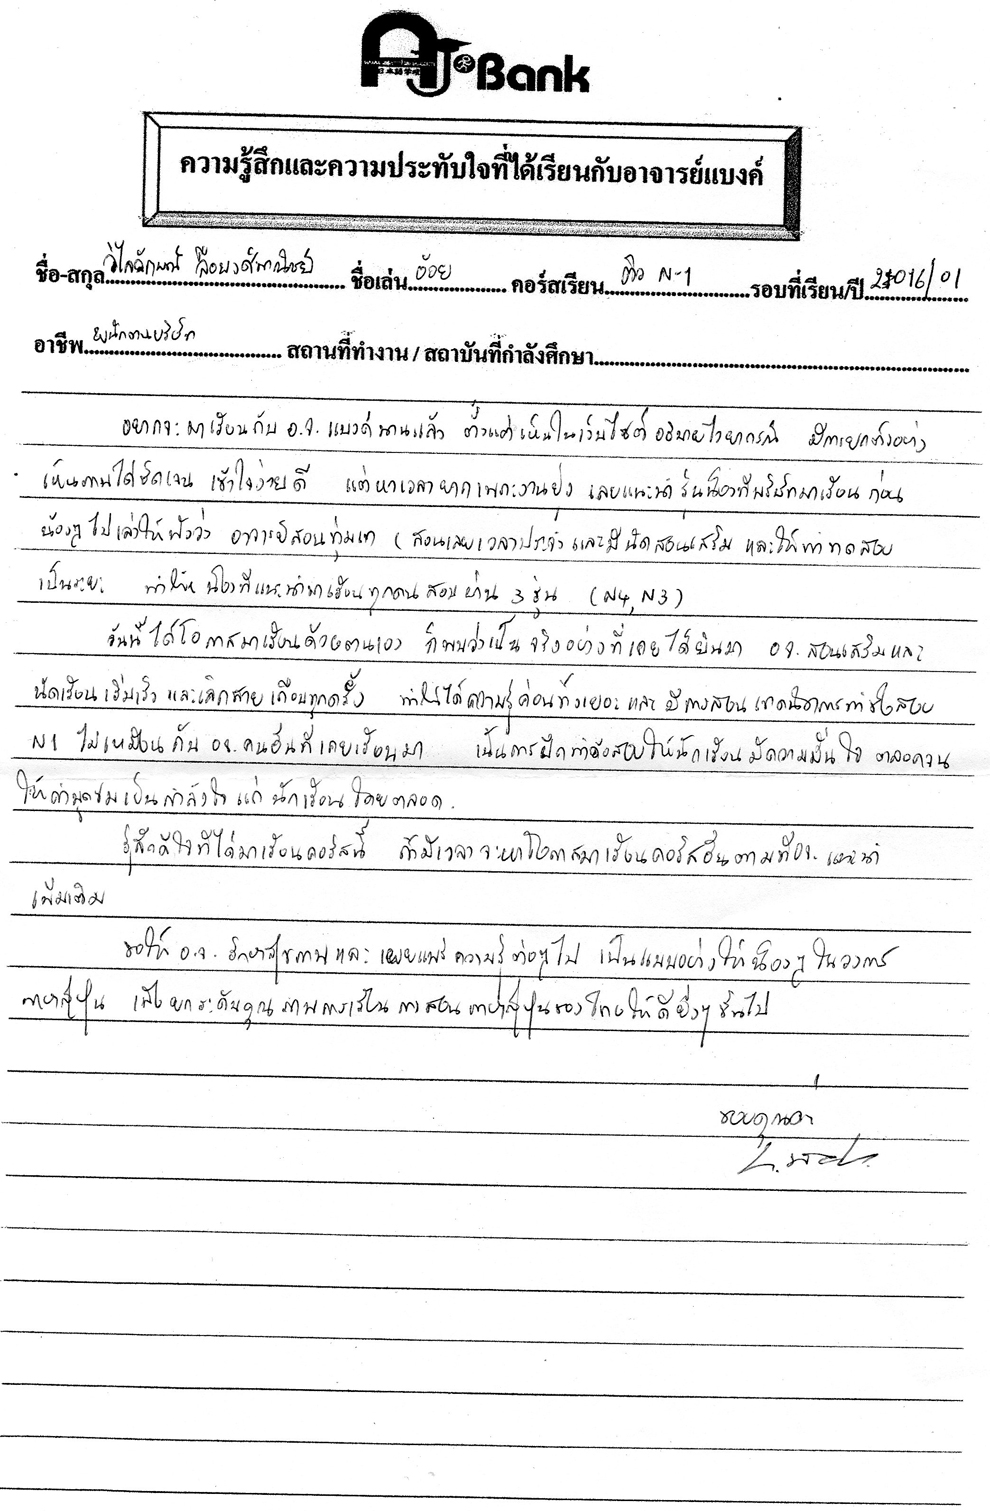 AJ Bank
日本語学校
ความรู้สึกและความประทับใจที่ได้เรียนกับอาจารย์แบงค์
ชื่อ-สกุล วิไลลักษณ์ ชื่อเล่น อ้อย คอร์สเรียน ติว N-1 รอบที่เรียน/ปี 2016/01
อาชีพ พนักงานบริษัท สถานที่ทำงาน / สถาบันที่กำลังศึกษา
อยากจะมาเรียนกับ อ.จ. แบงค์นานแล้ว ตั้งแต่เห็นในเว็บไซต์ อธิบายไวยากรณ์ มีการยกตัวอย่าง
เห็นภาพได้ชัดเจน เข้าใจง่ายดี แต่หาเวลายากเพราะงานยุ่ง เลยแนะนำ รุ่นน้องที่บริษัทมาเรียน ก่อน
น้องๆ ไปเล่าให้ฟังว่า อาจารย์สอนทุ่มเท (สอนเลยเวลาประจำ และมีนัดสอนเสริม และให้ทำทดสอบ
เป็นระยะ ทำให้ น้องที่แนะนำมาเรียนทุกคน สอบผ่าน 3 รุ่น (N4, N3)
วันนี้ได้โอกาสมาเรียนด้วยตนเอง ก็พบว่าเป็นจริงอย่างที่เคยได้ยินมา อจ. สอนเสริมและ
นัดเรียนเริ่มเร็ว และเลิกสาย เกือบทุกครั้ง ทำให้ได้ความรู้ค่อนข้างเยอะ และ มีการสอน เทคนิคการทำข้อสอบ
N1 ไม่เหมือนกับ อจ. คนอื่นที่เคยเรียนมา เน้นการฝึกทำข้อสอบให้นักเรียนมีความมั่นใจ ตลอดจน
ให้คำพูดชมเป็นกำลังใจ แก่ นักเรียนโดยตลอด.
รู้สึกดีใจที่ได้มาเรียนคอร์สนี้ ถ้ามีเวลา จะหาโอกาสมาเรียนคอร์สอื่นตามที่อจ. แนะนำ
เพิ่มเติม
ขอให้ อ.จ. รักษาสุขภาพและ เผยแพร่ความรู้ต่อๆ ไป เป็นแบบอย่างให้น้องๆ ในวงการ
ภาษาญี่ปุ่น เพื่อยกระดับคุณภาพการเรียน การสอน ภาษาญี่ปุ่นของไทยให้ดียิ่งๆ ขึ้นไป
ขอบคุณค่ะ